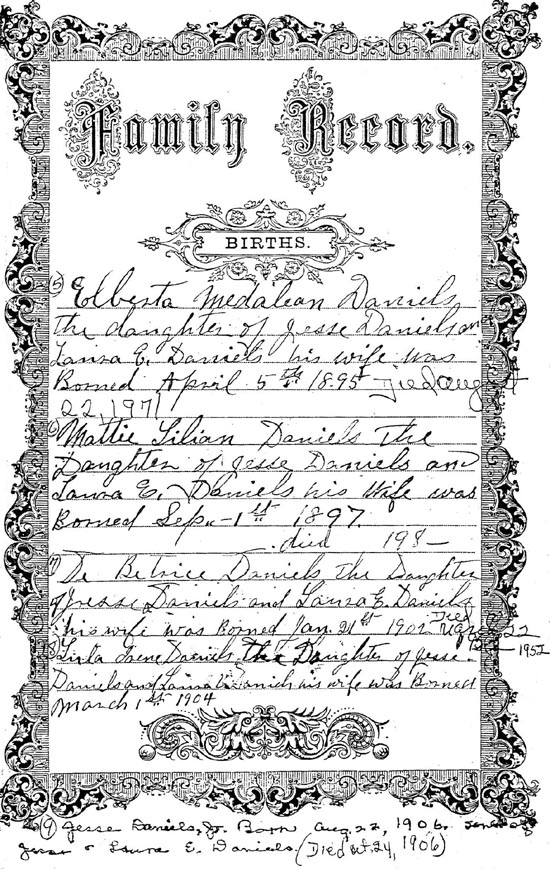 Family Record.
BIRTHS.
(5) Elberta Medalean Daniels
the daughter of Jesse Daniels an
Laura E. Daniels his wife was
Borned April 5th 1895 Died August
22, 1971
(6) Mattie Lilian Daniels The
Daughter of Jesse Daniels and
Laura E. Daniels his Wife was
Borned Sep. 1st 1897.
died 198–
(7) De Betrice Daniels The Daughter
of Jesse Daniels and Laura E. Daniels
his wife was Borned Jan. 21st 1902 Died
22
1952
(8) Lula Irene Daniels the Daughter of Jesse
Daniels and Laura E. Daniels his wife was Borned
March 1st 1904
(9) Jesse Daniels, Jr. Born Aug. 22, 1906. son of
Jesse & Laura E. Daniels. (Died Oct. 24, 1906)